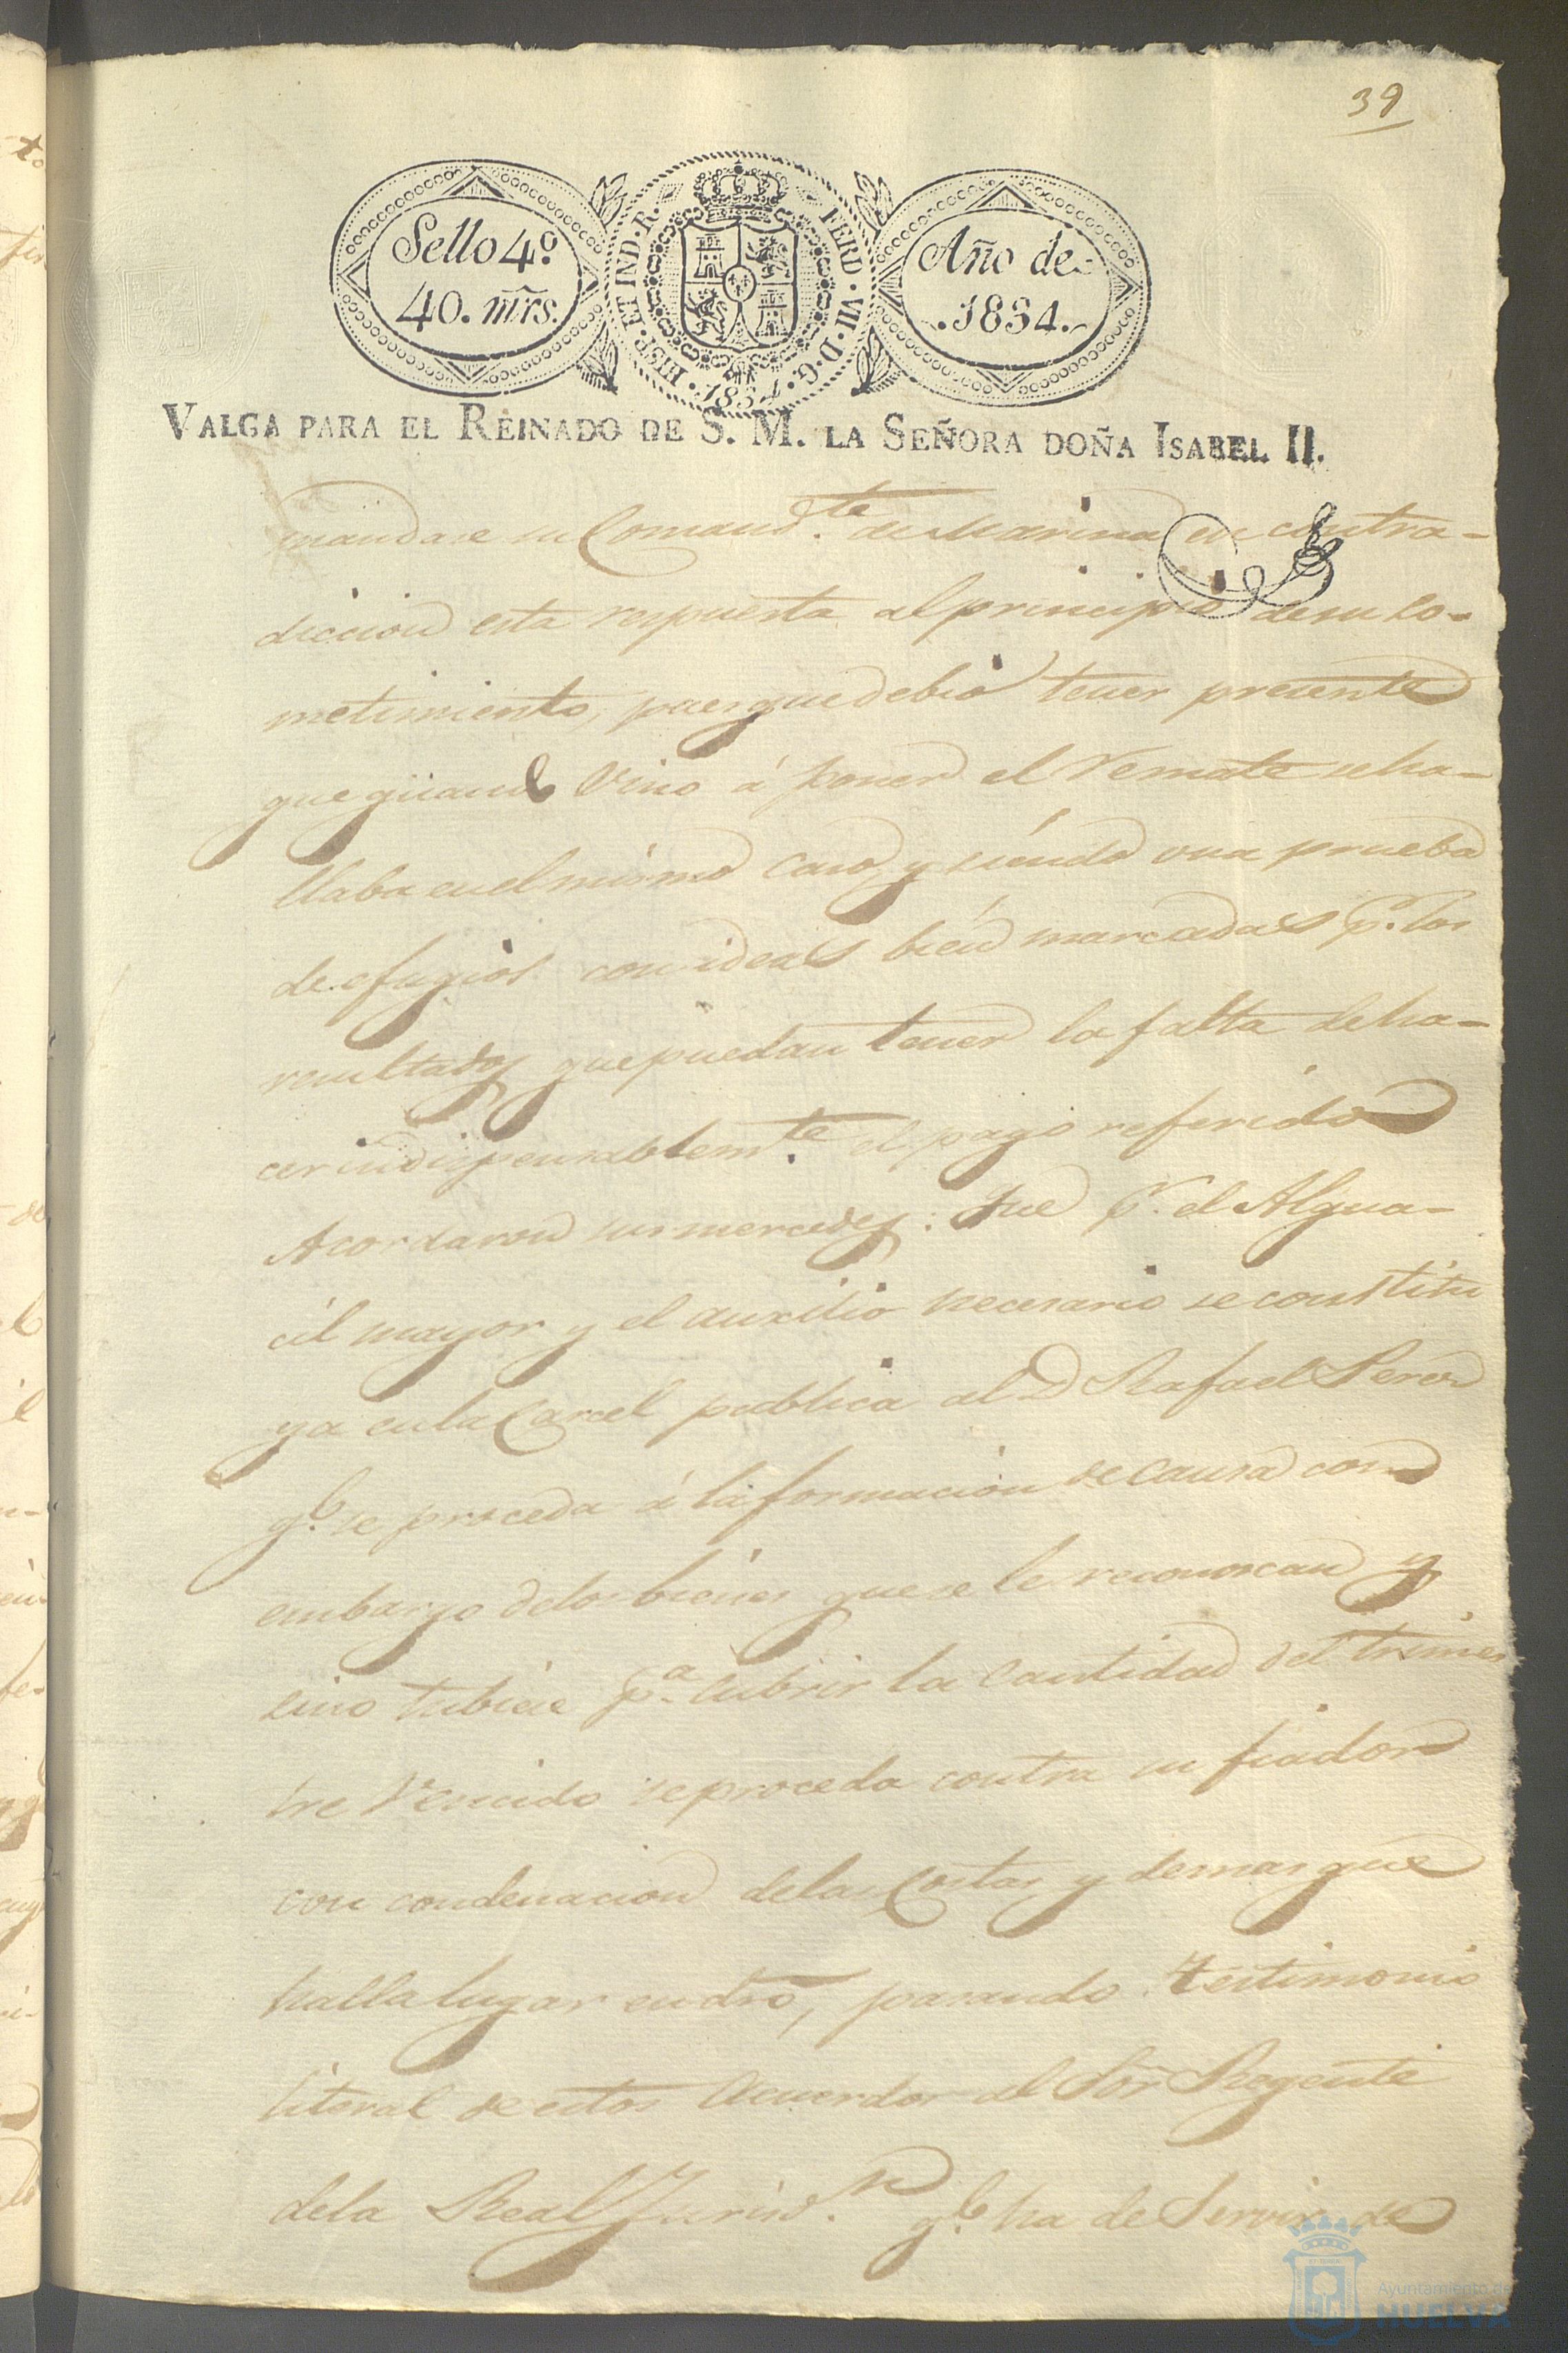 39
Sello 4º
40. mrs.
HISP. ET IND. R.
FERD. VII. D. G.
1834.
Año de
.1834.
VALGA PARA EL REINADO DE S. M. LA SEÑORA DOÑA ISABEL II.
mandase su Comand.te de Marina en contra-
diccion esta respuesta al principio de su so-
metimiento, pues que debio tener presente
que quando vino á poner el remate se ha-
llaba en el mismo caso, y siendo una prueba
de efugios con ideas bien marcadas p.r los
resultados que puedan tener la falta de ha-
cer indispensablem.te el pago referido
Acordaron sus mercedes: Que p.r el Algua-
cil mayor y el auxilio necesario se constitu
ya en la Carcel publica al D Rafael Perez
q.e se proceda á la formacion de causa con
embargo de los bienes que se le reconoscan y
sino tubiese p.a cubrir la cantidad del trimes
tre vencido se proceda contra su fiador
con condenacion de las Costas y demas que
halla lugar en dro, pasando testimonio
literal de estos Acuerdos al Sor Regente
de la Real Jurisd.n q.e ha de servir de
Ayuntamiento de
HUELVA